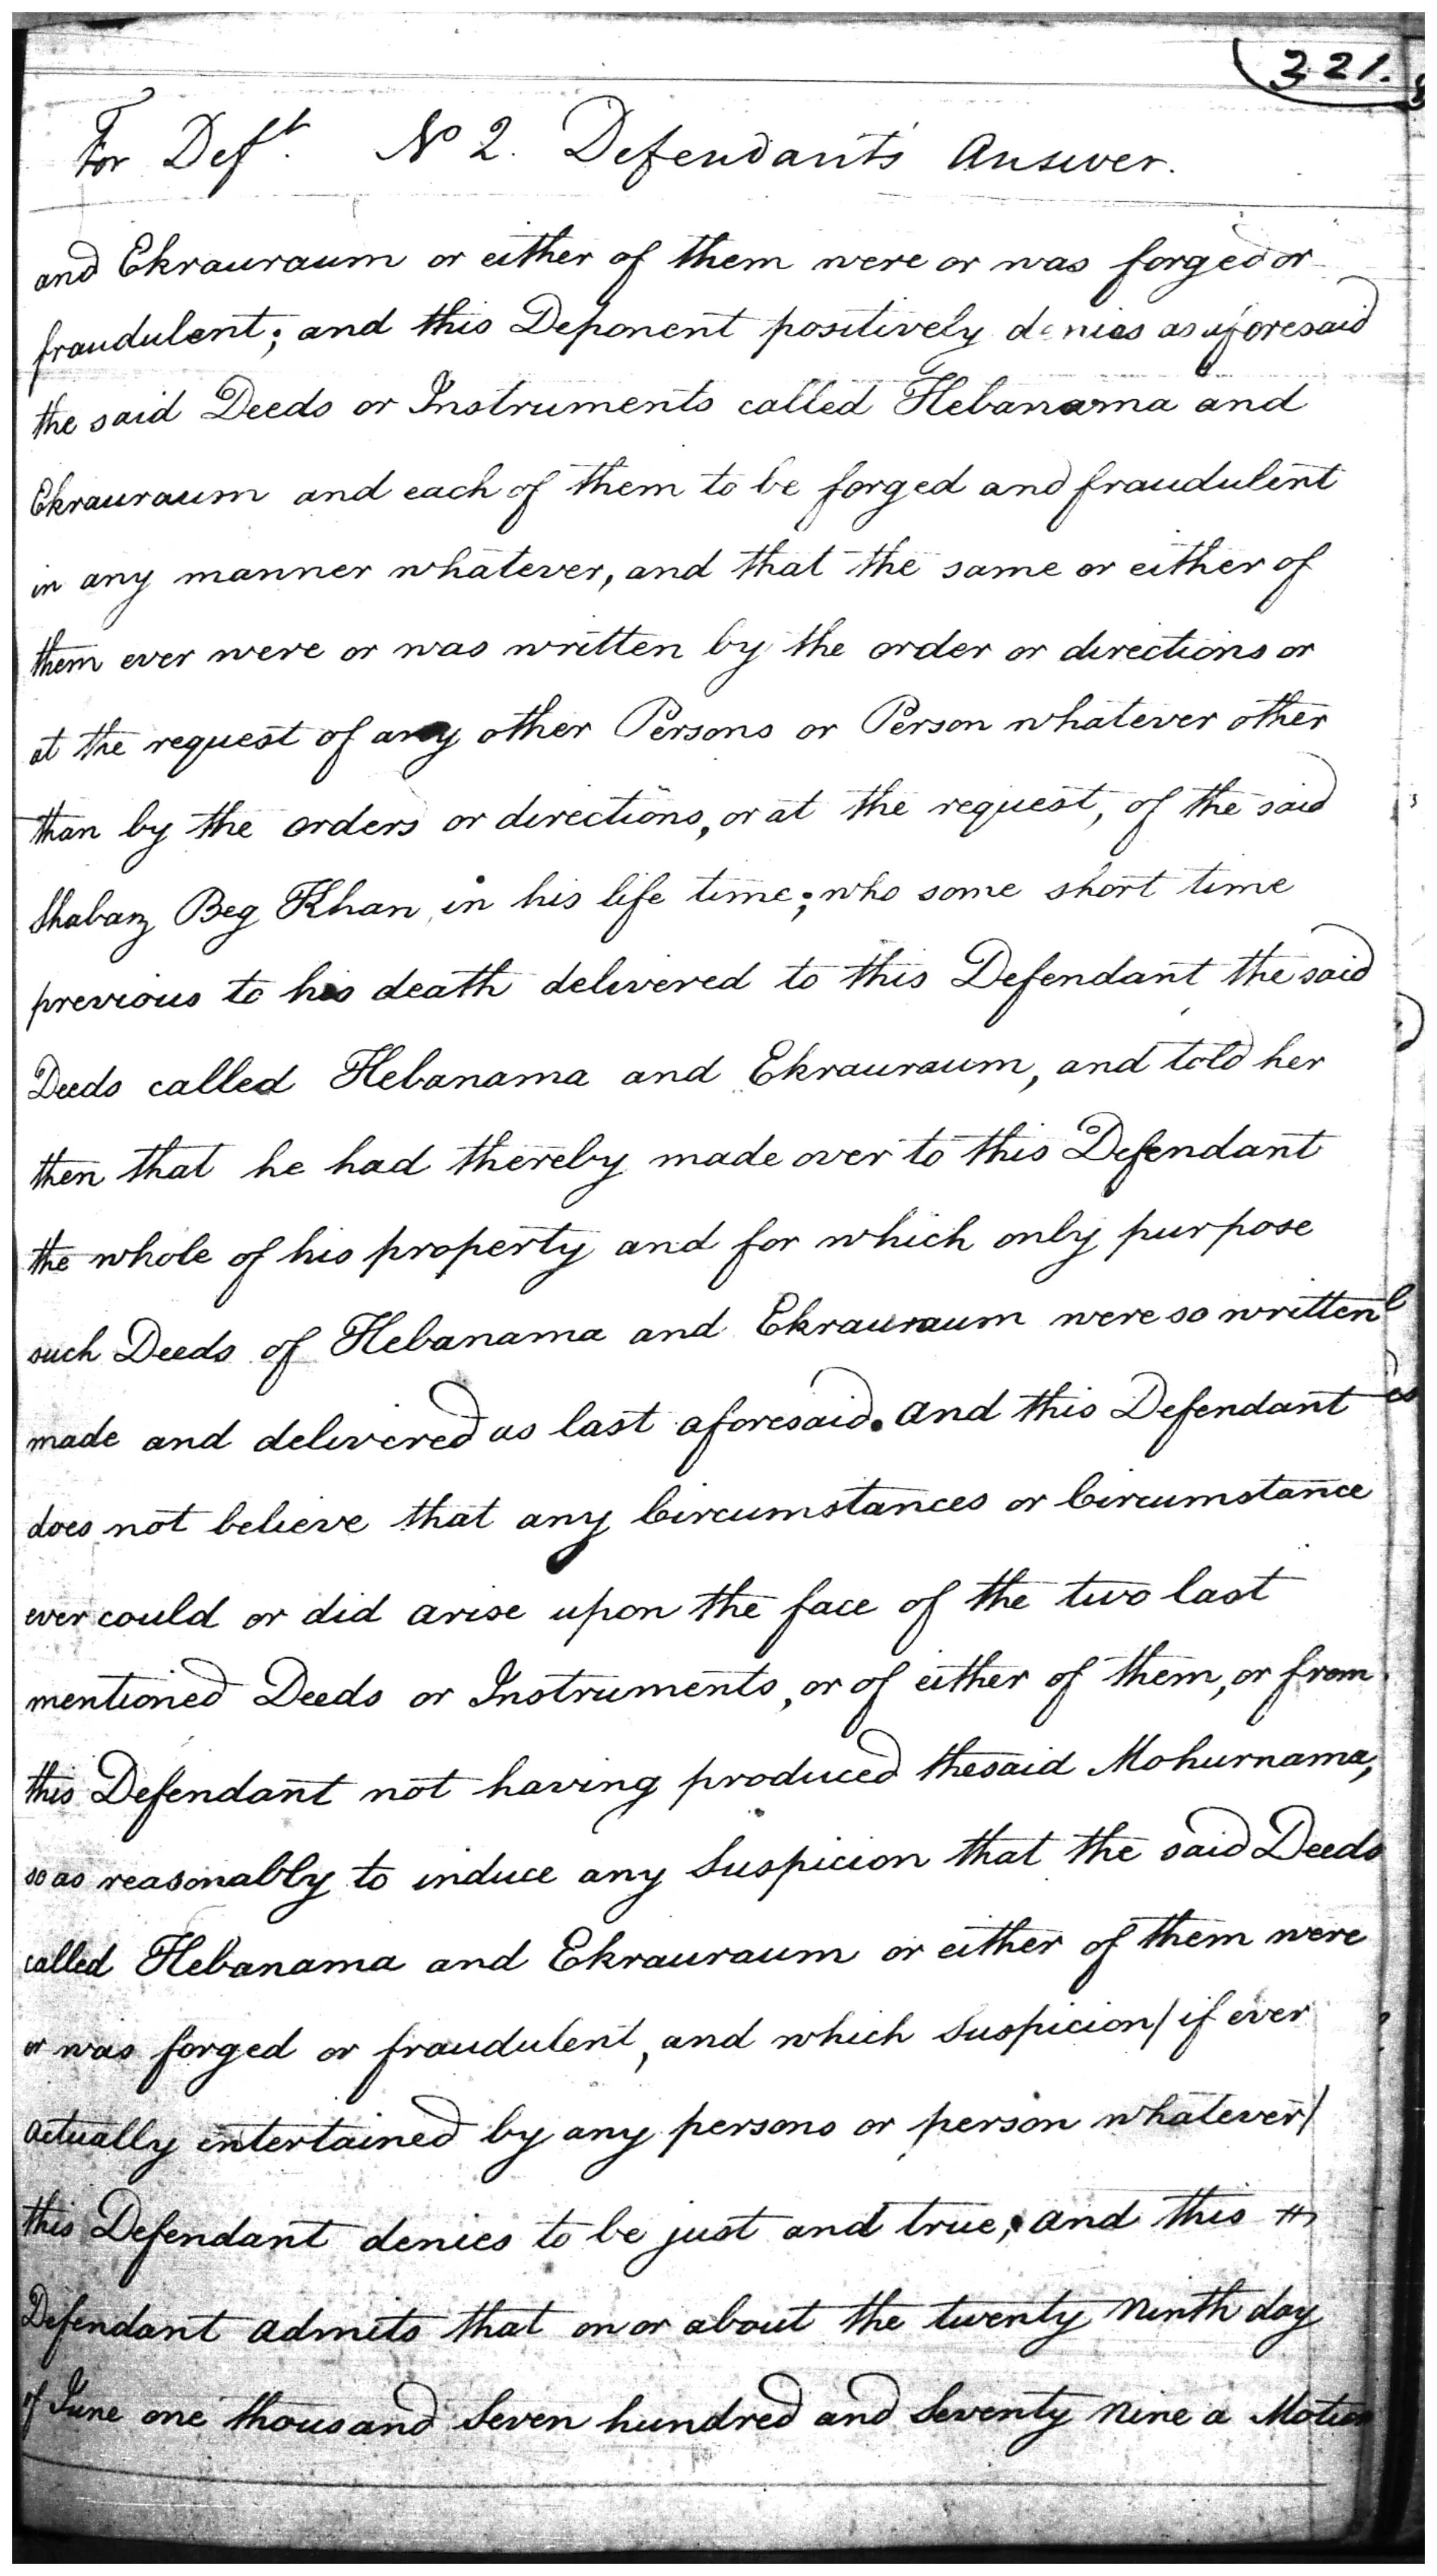 321.
For Deft. No 2. Defendant's Answer.
and Ekrauraum or either of them were or was forged or
fraudulent; and this Deponent positively denies as aforesaid
the said Deeds or Instruments called Hebanama and
Ekrauraum and each of them to be forged and fraudulent
in any manner whatever, and that the same or either of
them ever were or was written by the order or directions or
at the request of any other Persons or Person whatever other
than by the orders or directions, or at the request, of the said
Shabaz Beg Khan in his life time; who some short time
previous to his death delivered to this Defendant the said
Deeds called Hebanama and Ekrauraum, and told her
then that he had thereby made over to this Defendant
the whole of his property and for which only purpose
such Deeds of Hebanama and Ekrauraum were so written
made and delivered as last aforesaid. and this Defendant
does not believe that any Circumstances or Circumstance
ever could or did arise upon the face of the two last
mentioned Deeds or Instruments, or of either of them, or from
this Defendant not having produced the said Mohurnama,
so as reasonably to induce any Suspicion that the said Deeds
called Hebanama and Ekrauraum or either of them were
or was forged or fraudulent, and which Suspicion/ if ever
actually entertained by any persons or person whatever/
this Defendant denies to be just and true; and this
Defendant admits that on or about the twenty ninth day
of June one thousand Seven hundred and Seventy nine a Motion